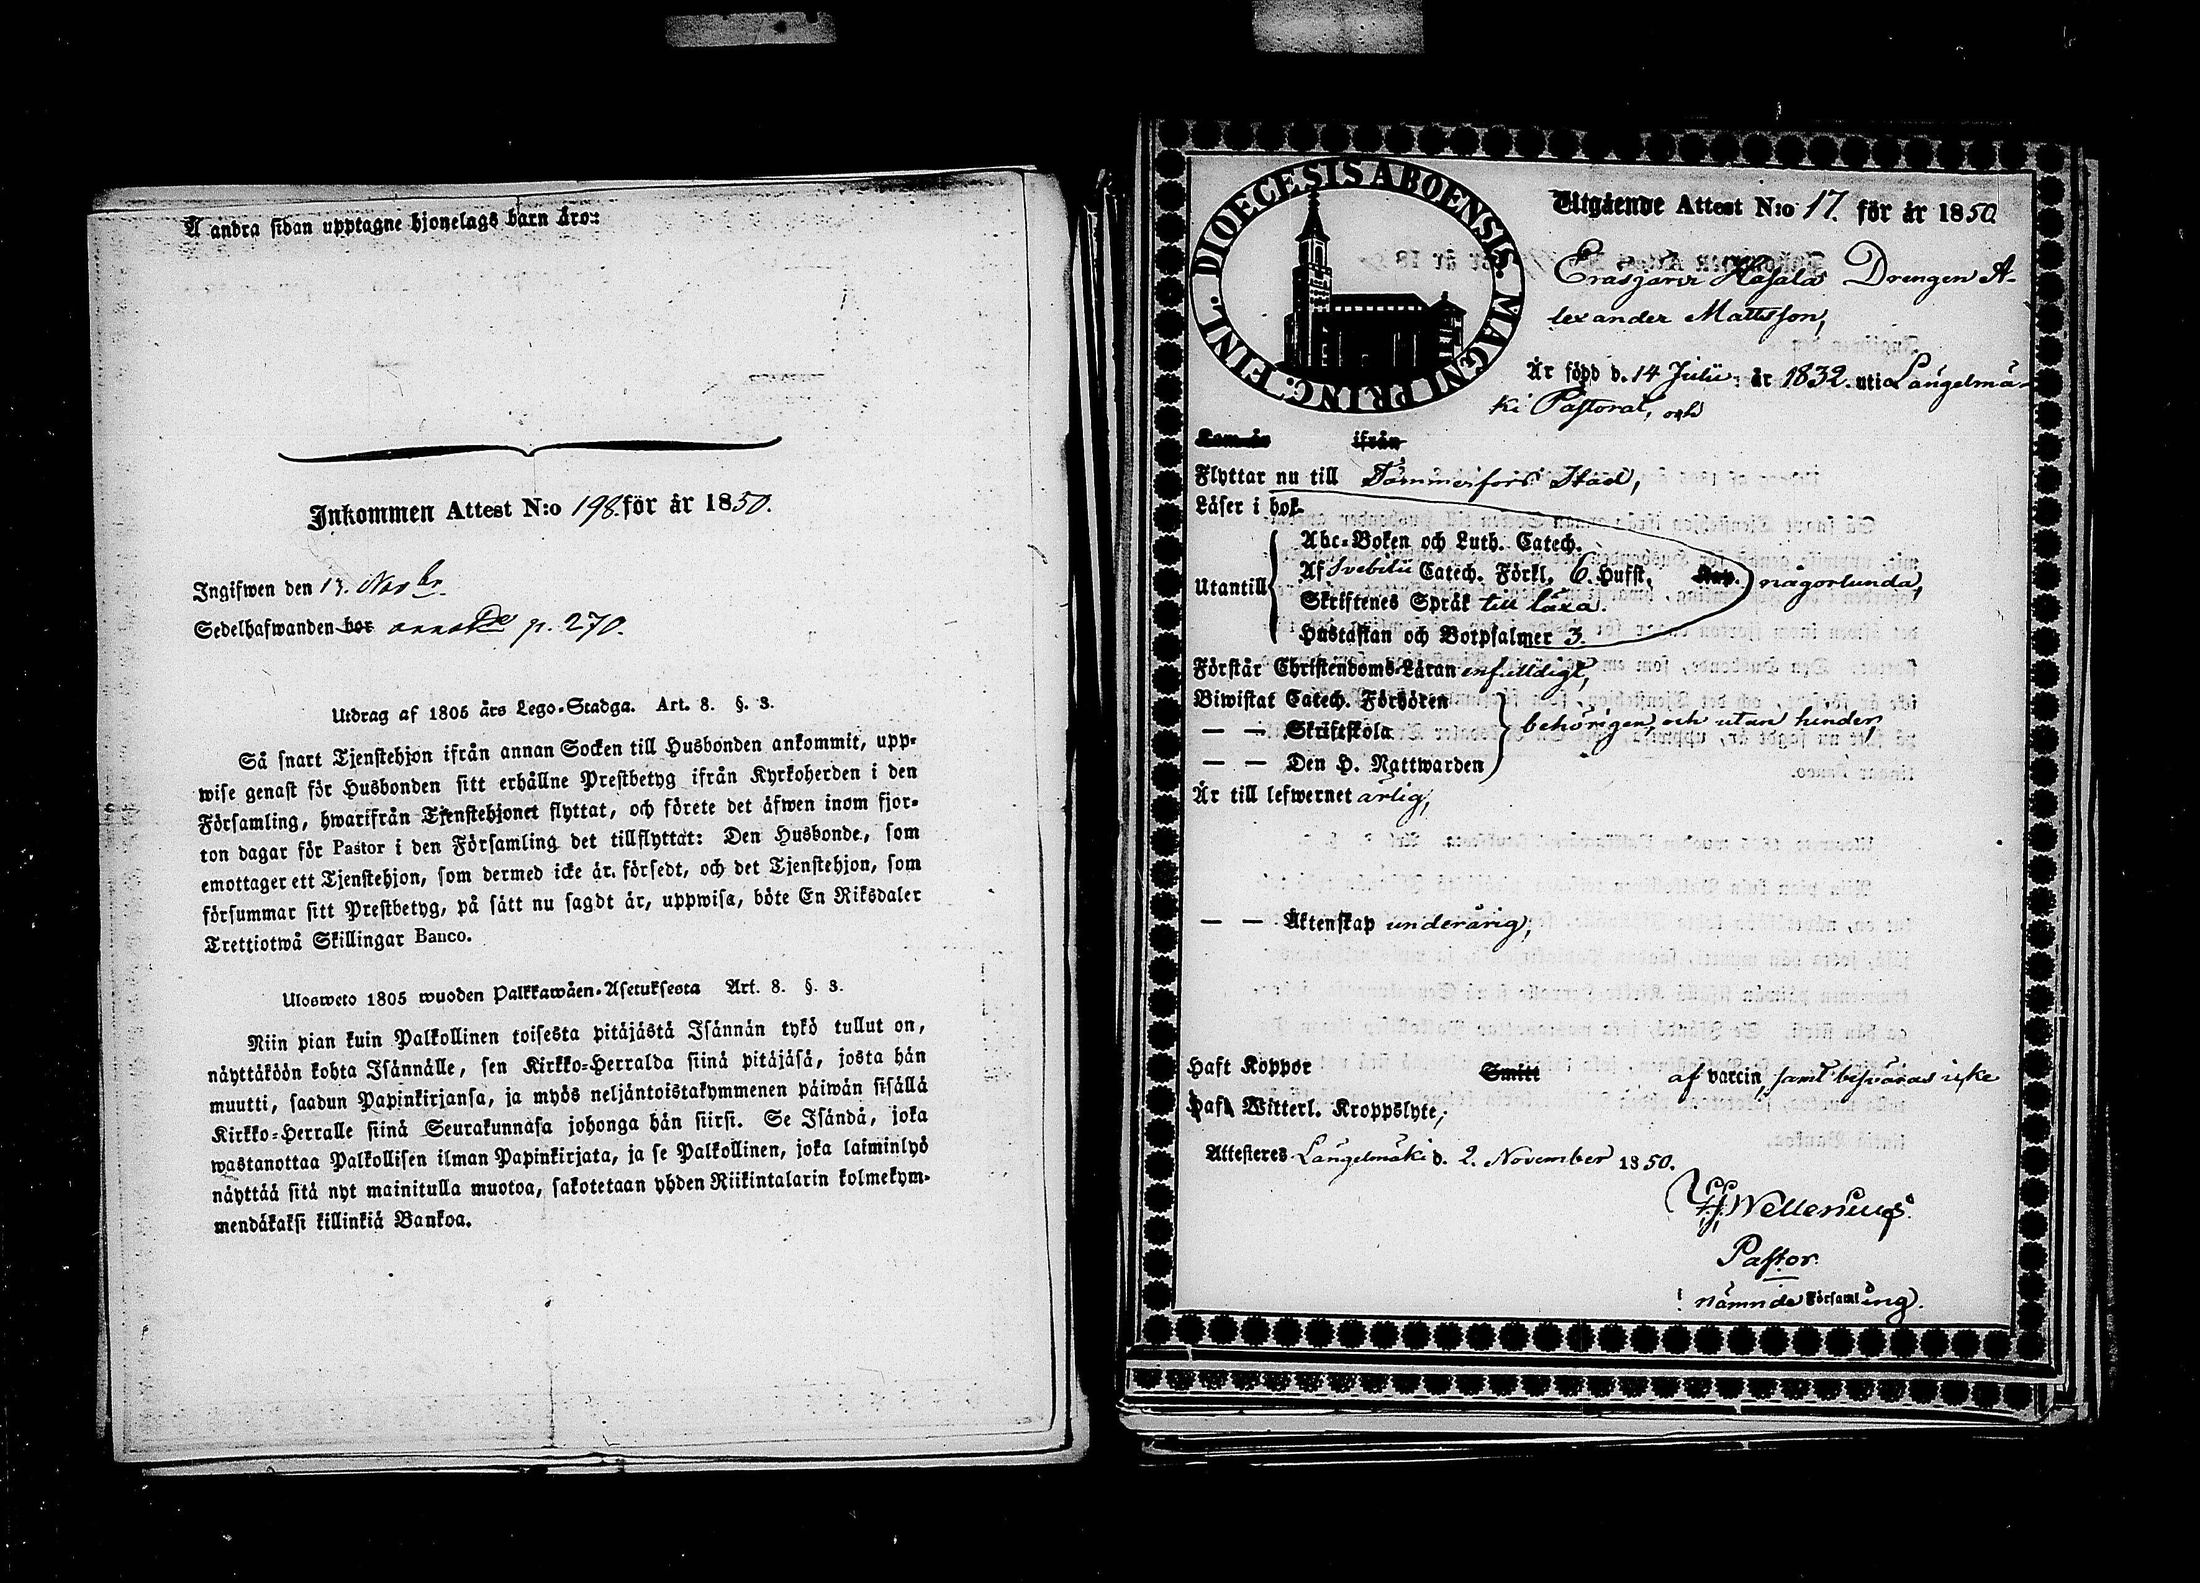 Å andra sidan upptagne hjonelags barn äro:
Inkommen Attest N:o 198. för år 1850.
Ingifwen den 13. Novbr.
Sedelhafwanden bor annot. p. 270.
Utdrag af 1805 års Lego-Stadga. Art. 8. §. 3.
Så snart Tjenstehjon ifrån annan Socken till Husbonden ankommit, upp-
wise genast för Husbonden sitt erhållne Prestbetyg ifrån Kyrkoherden i den
Församling, hwarifrån Tjenstehjonet flyttat, och förete det äfwen inom fjor-
ton dagar för Pastor i den Församling det tillflyttat: Den Husbonde, som
emottager ett Tjenstehjon, som dermed icke är försedt, och det Tjenstehjon, som
försummar sitt Prestbetyg, på sätt nu sagdt är, uppwisa, böte En Riksdaler
Trettiotwå Skillingar Banco.
Ulosweto 1805 wuoden Palkkawäen-Asetuksesta Art. 8. §. 3.
Niin pian kuin Palkollinen toisesta pitäjästä Isännän tykö tullut on,
näyttäköön kohta Isännälle, sen Kirkko-Herralda siinä pitäjäsä, josta hän
muutti, saadun Papinkirjansa, ja myös neljäntoistakymmenen päiwän sisällä
Kirkko-Herralle siinä Seurakunnasa johonga hän siirsi. Se Isändä, joka
wastanottaa Palkollisen ilman Papinkirjata, ja se Palkollinen, joka laiminlyö
näyttää sitä nyt mainitulla muotoa, sakotetaan yhden Riikintalarin kolmekym-
mendäkaksi killinkiä Bankoa.
DIOECESIS ABOENSIS. MAGNI PRINC. FINL.
Utgående Attest N:o 17. för år 1850
Erasjärvi Hasala Drengen A-
lexander Mattsson,
Är född d. 14 Julii år 1832. uti Längelmä-
ki Pastorat, och
Kom år ifrån
Flyttar nu till Tammerfors Stad,
Läser i bok.
Utantill
Abc-Boken och Luth. Catech.
Af Svebilii Catech. Förkl. 6. Hufst. Kap. någorlunda,
Skriftenes Språk till läxa.
Hustaflan och Botpsalmer 3.
Förstår Christendoms-Läran enfalldigt,
Biwistat Catech. Förhören
— — Skriftskola behörigen, och utan hinder,
— — Den H. Nattwarden
Är till lefwernet ärlig,
— — Äktenskap underårig,
Haft Koppor Smitt af vaccin, samt besväras icke
Haft Witterl. Kroppslyte,
Attesteres Längelmäki d. 2. November 1850.
Wellenius
Pastor
i nämnde Församling.